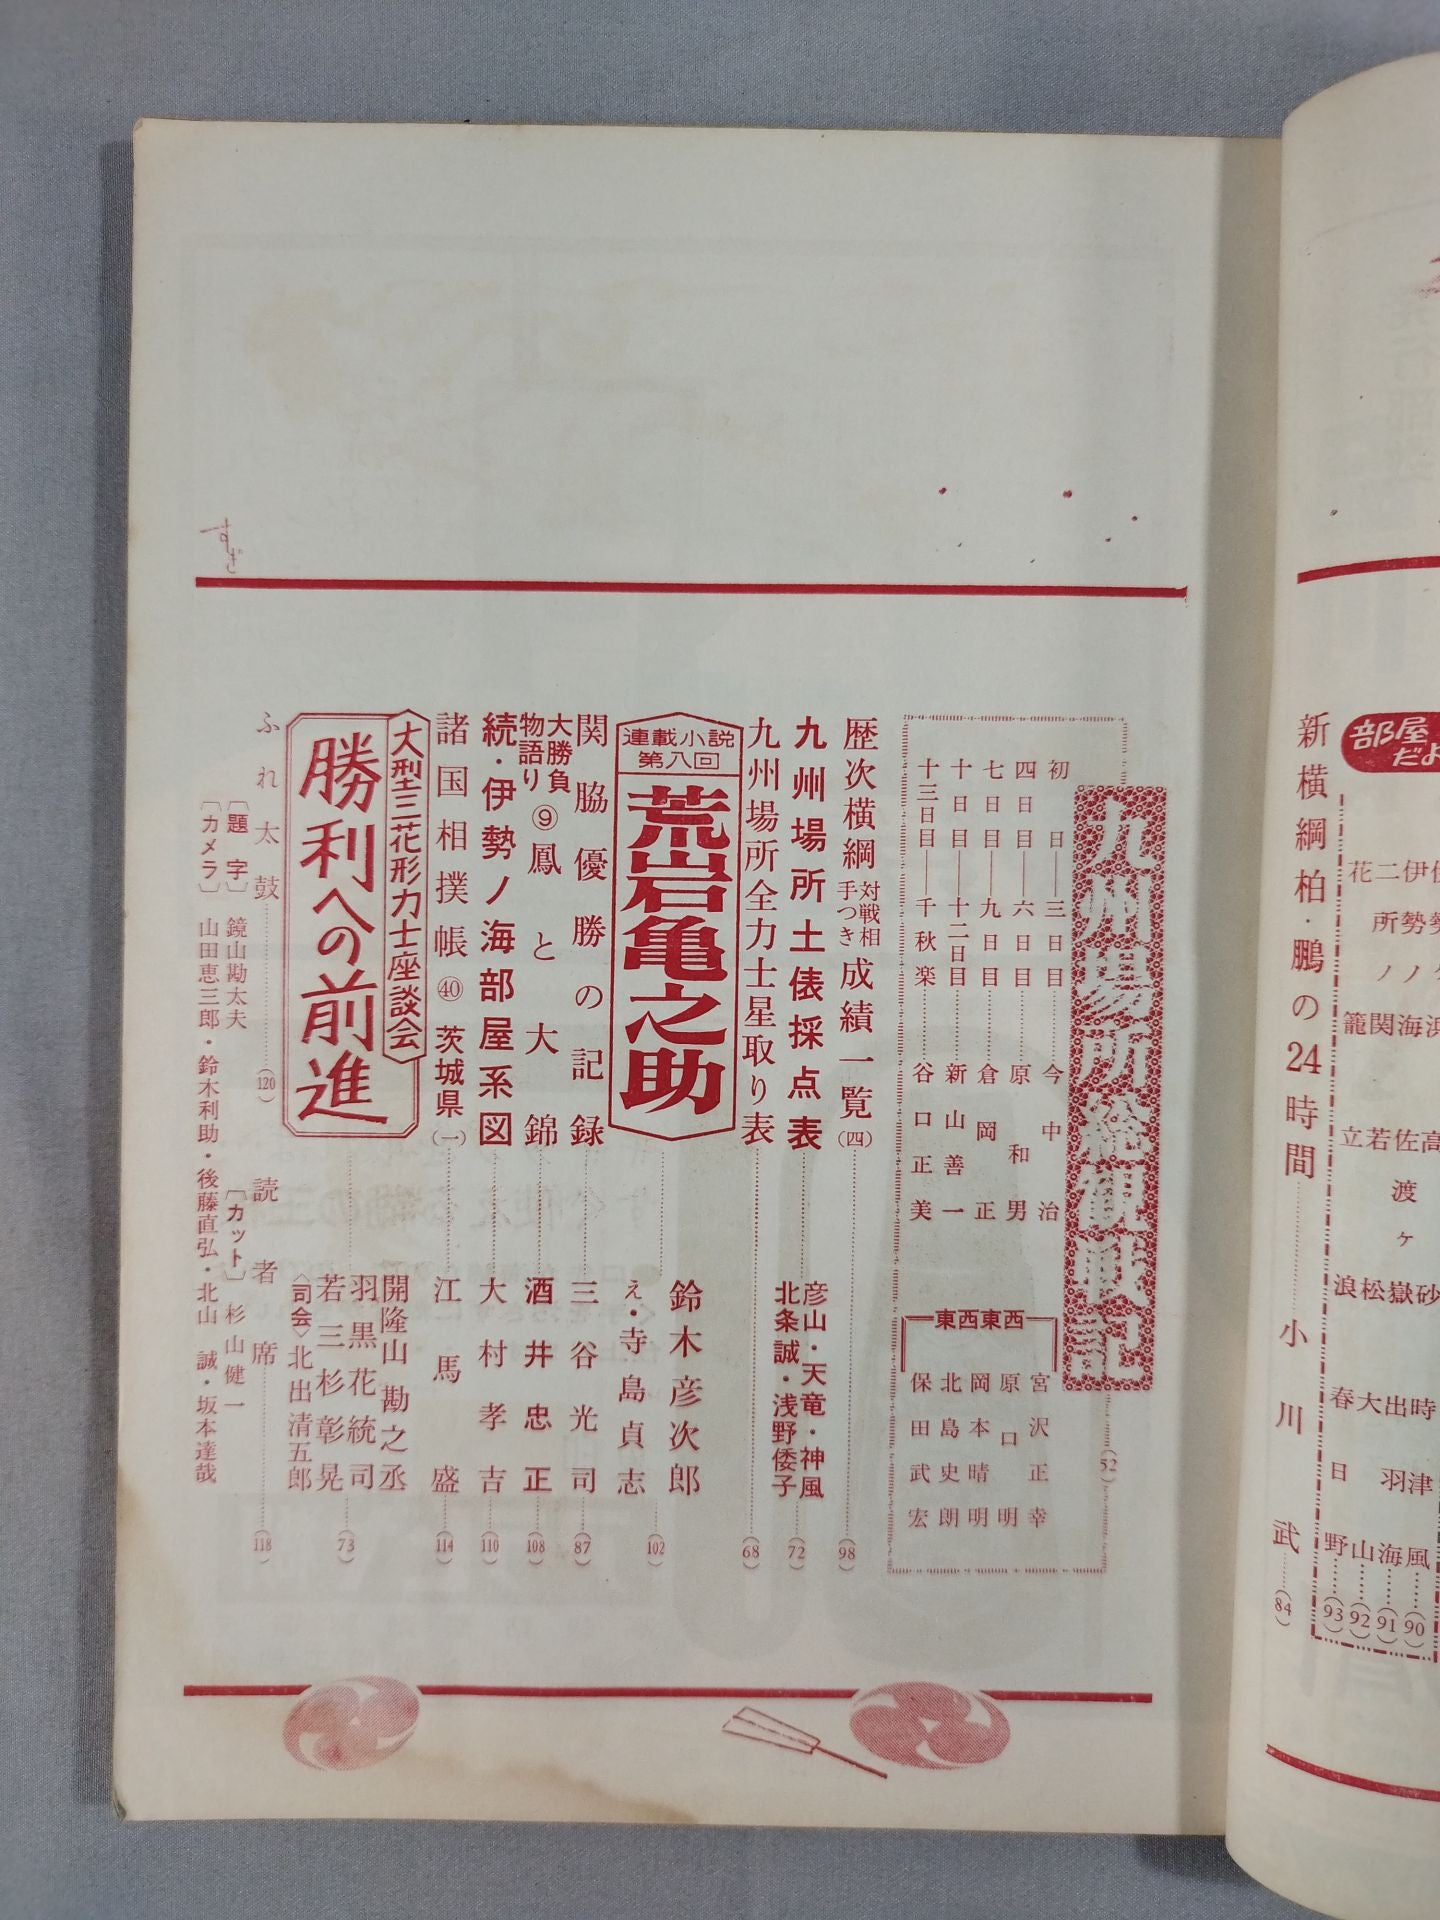 部屋だよ
花二伊
所勢勢
ノノ
籠関海浜
立若佐高
渡
ヶ
浪松嶽砂
春大出時
日羽津
野山海風
(93)(92)(91)(90)
新横綱柏・鵬の24時間……小川武……(84)
九州場所総観戦記……(52)
初日―三日目……今中治
四日目―六日目……原和男
七日目―九日目……倉岡正
十日目―十二日目……新山善一
十三日目―千秋楽……谷口正美
東西東西
宮沢正幸
原口明
岡本晴明
北島史朗
保田武宏
歴次横綱対戦相手つき成績一覧(四)……(98)
九州場所土俵採点表……彦山・天竜・神風 北条誠・浅野倭子……(72)
九州場所全力士星取り表……(68)
連載小説
第八回
荒岩亀之助……鈴木彦次郎 え・寺島貞志……(102)
関脇優勝の記録……三谷光司……(87)
大勝負物語り⑨鳳と大錦……酒井忠正……(108)
続・伊勢ノ海部屋系図……大村孝吉……(110)
諸国相撲帳㊵茨城県(一)……江馬盛……(114)
大型三花形力士座談会
勝利への前進……開隆山勘之丞 羽黒花統司 若三杉彰晃 〈司会〉北出清五郎……(73)
ふれ太鼓……(120)
読者席……(118)
〔題字〕鏡山勘太夫
〔カット〕杉山健一
〔カメラ〕山田恵三郎・鈴木利助・後藤直弘・北山誠・坂本達哉
すぎ